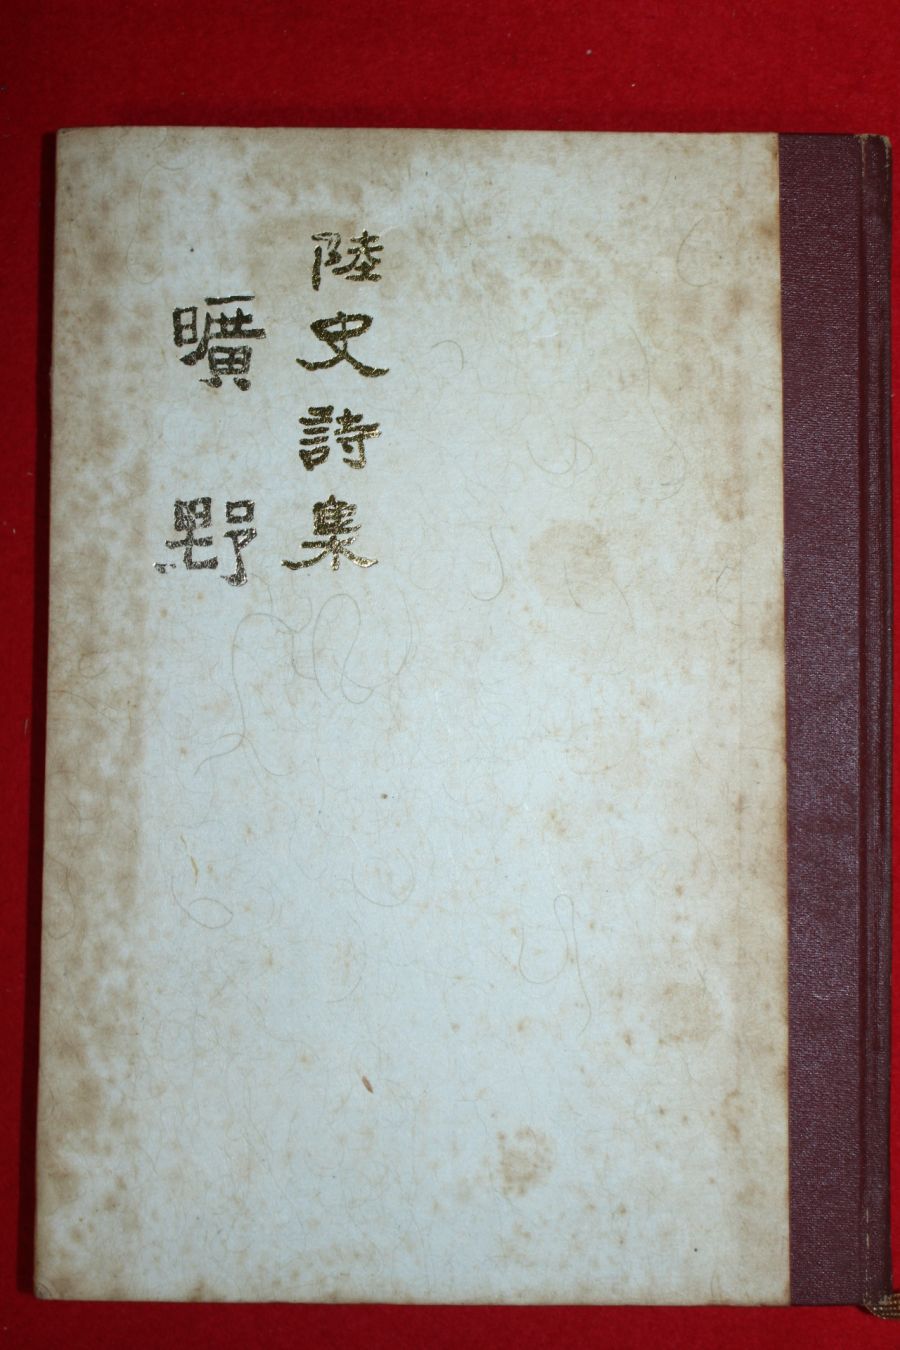 陸史詩集
曠野